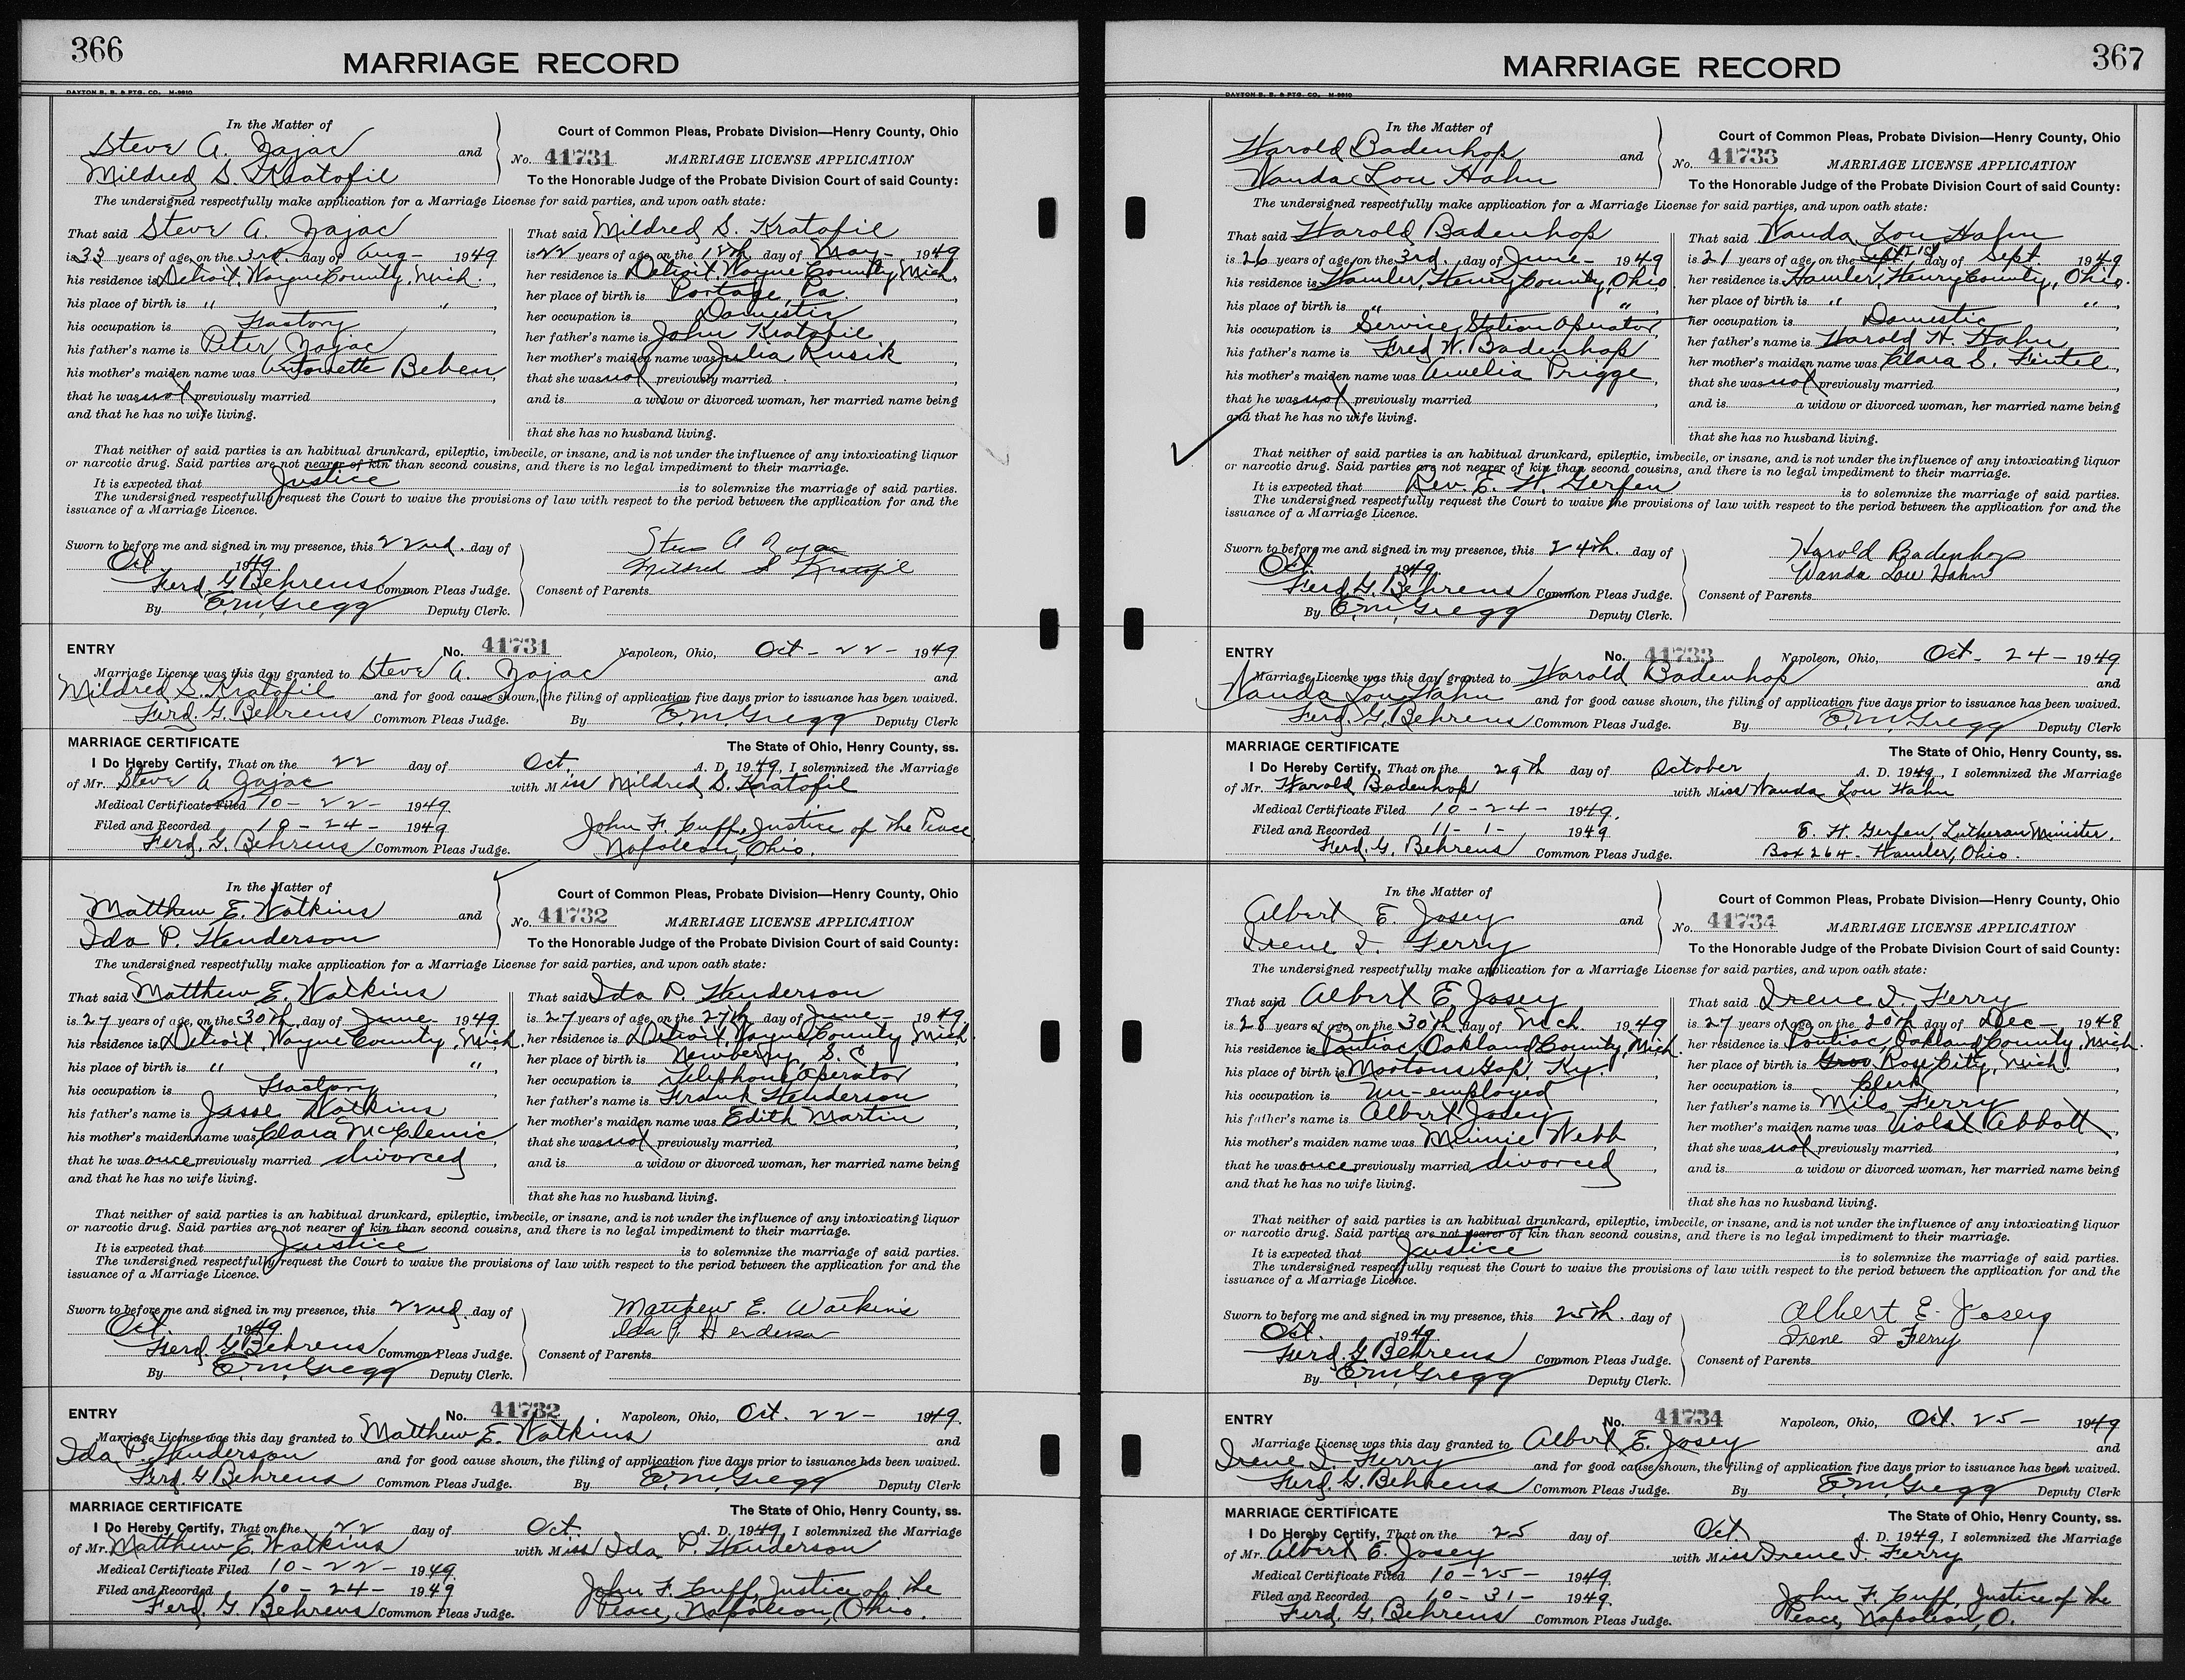 366
MARRIAGE RECORD
DAYTON B. B. & PTG. CO. M-9810
In the Matter of
Steve A. Zajac and
Mildred S. Kratofil
Court of Common Pleas, Probate Division—Henry County, Ohio
No. 41731 MARRIAGE LICENSE APPLICATION
To the Honorable Judge of the Probate Division Court of said County:
The undersigned respectfully make application for a Marriage License for said parties, and upon oath state:
That said Steve A. Zajac
is 33 years of age, on the 3rd day of Aug- 1949
his residence is Detroit, Wayne County, Mich.
his place of birth is " "
his occupation is Factory
his father's name is Peter Zajac
his mother's maiden name was Antonette Beben
that he was not previously married
and that he has no wife living.
That said Mildred S. Kratofil
is 22 years of age, on the 18th day of May- 1949
her residence is Detroit, Wayne County, Mich.
her place of birth is Portage, Pa.
her occupation is Domestic
her father's name is John Kratofil
her mother's maiden name was Julia Rusik
that she was not previously married
and is a widow or divorced woman, her married name being
that she has no husband living.
That neither of said parties is an habitual drunkard, epileptic, imbecile, or insane, and is not under the influence of any intoxicating liquor
or narcotic drug. Said parties are not nearer of kin than second cousins, and there is no legal impediment to their marriage.
It is expected that Justice is to solemnize the marriage of said parties.
The undersigned respectfully request the Court to waive the provisions of law with respect to the period between the application for and the
issuance of a Marriage Licence.
Sworn to before me and signed in my presence, this 22nd. day of
Oct 1949
Ferd. G. Behrens Common Pleas Judge.
By E.M. Gregg Deputy Clerk.
Steve A Zajac
Mildred S Kratofil
Consent of Parents
ENTRY No. 41731 Napoleon, Ohio, Oct- 22- 1949
Marriage License was this day granted to Steve A. Zajac and
Mildred S. Kratofil and for good cause shown, the filing of application five days prior to issuance has been waived.
Ferd. G. Behrens Common Pleas Judge. By E.M. Gregg Deputy Clerk
MARRIAGE CERTIFICATE The State of Ohio, Henry County, ss.
I Do Hereby Certify, That on the 22 day of Oct. A. D. 1949, I solemnized the Marriage
of Mr. Steve A Zajac with Miss Mildred S. Kratofil
Medical Certificate Filed 10-22- 1949
Filed and Recorded 10-24- 1949
Ferd. G. Behrens Common Pleas Judge.
John F. Cuff, Justice of the Peace,
Napoleon, Ohio.
In the Matter of
Matthew E. Watkins and
Ida P. Henderson
Court of Common Pleas, Probate Division—Henry County, Ohio
No. 41732 MARRIAGE LICENSE APPLICATION
To the Honorable Judge of the Probate Division Court of said County:
The undersigned respectfully make application for a Marriage License for said parties, and upon oath state:
That said Matthew E. Watkins
is 27 years of age, on the 30th. day of June- 1949
his residence is Detroit, Wayne County, Mich.
his place of birth is " "
his occupation is Factory
his father's name is Jesse Watkins
his mother's maiden name was Clara McClenic
that he was once previously married divorced
and that he has no wife living.
That said Ida P. Henderson
is 27 years of age, on the 27th day of June- 1949
her residence is Detroit, Wayne County Mich.
her place of birth is Newberry, S. C
her occupation is Telephone Operator
her father's name is Frank Henderson
her mother's maiden name was Edith Martin
that she was not previously married
and is a widow or divorced woman, her married name being
that she has no husband living.
That neither of said parties is an habitual drunkard, epileptic, imbecile, or insane, and is not under the influence of any intoxicating liquor
or narcotic drug. Said parties are not nearer of kin than second cousins, and there is no legal impediment to their marriage.
It is expected that Justice is to solemnize the marriage of said parties.
The undersigned respectfully request the Court to waive the provisions of law with respect to the period between the application for and the
issuance of a Marriage Licence.
Sworn to before me and signed in my presence, this 22nd. day of
Oct. 1949
Ferd. G Behrens Common Pleas Judge.
By E.M. Gregg Deputy Clerk.
Matthew E. Watkins
Ida P. Henderson
Consent of Parents
ENTRY No. 41732 Napoleon, Ohio, Oct. 22- 1949.
Marriage License was this day granted to Matthew E. Watkins and
Ida P. Henderson and for good cause shown, the filing of application five days prior to issuance has been waived.
Ferd. G. Behrens Common Pleas Judge. By E.M. Gregg Deputy Clerk
MARRIAGE CERTIFICATE The State of Ohio, Henry County, ss.
I Do Hereby Certify, That on the 22 day of Oct. A. D. 1949, I solemnized the Marriage
of Mr. Matthew E. Watkins with Miss Ida P. Henderson
Medical Certificate Filed 10-22- 1949.
Filed and Recorded 10-24- 1949
Ferd. G. Behrens Common Pleas Judge.
John F. Cuff, Justice of the
Peace, Napoleon, Ohio.
367
MARRIAGE RECORD
DAYTON B. B. & PTG. CO. M-9810
In the Matter of
Harold Badenhop and
Wanda Lou Hahn
Court of Common Pleas, Probate Division—Henry County, Ohio
No. 41733 MARRIAGE LICENSE APPLICATION
To the Honorable Judge of the Probate Division Court of said County:
The undersigned respectfully make application for a Marriage License for said parties, and upon oath state:
That said Harold Badenhop
is 26 years of age, on the 3rd. day of June- 1949
his residence is Hamler, Henry County, Ohio
his place of birth is " "
his occupation is Service Station Operator
his father's name is Fred W. Badenhop
his mother's maiden name was Amelia Prigge
that he was not previously married
and that he has no wife living.
That said Wanda Lou Hahn
is 21 years of age, on the Sept 21st day of Sept. 1949
her residence is Hamler, Henry County, Ohio.
her place of birth is " "
her occupation is Domestic
her father's name is Harold H. Hahn
her mother's maiden name was Clara S. Feintel
that she was not previously married
and is a widow or divorced woman, her married name being
that she has no husband living.
That neither of said parties is an habitual drunkard, epileptic, imbecile, or insane, and is not under the influence of any intoxicating liquor
or narcotic drug. Said parties are not nearer of kin than second cousins, and there is no legal impediment to their marriage.
It is expected that Rev. E. H. Gerfen is to solemnize the marriage of said parties.
The undersigned respectfully request the Court to waive the provisions of law with respect to the period between the application for and the
issuance of a Marriage Licence.
Sworn to before me and signed in my presence, this 24th. day of
Oct. 1949.
Ferd. G. Behrens Common Pleas Judge.
By E.M. Gregg Deputy Clerk.
Harold Badenhop
Wanda Lou Hahn
Consent of Parents
ENTRY No. 41733 Napoleon, Ohio, Oct- 24- 1949
Marriage License was this day granted to Harold Badenhop and
Wanda Lou Hahn and for good cause shown, the filing of application five days prior to issuance has been waived.
Ferd. G. Behrens Common Pleas Judge. By E.M. Gregg Deputy Clerk
MARRIAGE CERTIFICATE The State of Ohio, Henry County, ss.
I Do Hereby Certify, That on the 29th day of October A. D. 1949, I solemnized the Marriage
of Mr. Harold Badenhop with Miss Wanda Lou Hahn
Medical Certificate Filed 10-24- 1949.
Filed and Recorded 11-1- 1949
Ferd. G. Behrens Common Pleas Judge.
E. H. Gerfen, Lutheran Minister.
Box 264- Hamler, Ohio.
In the Matter of
Albert E. Josey and
Irene I. Ferry
Court of Common Pleas, Probate Division—Henry County, Ohio
No. 41734 MARRIAGE LICENSE APPLICATION
To the Honorable Judge of the Probate Division Court of said County:
The undersigned respectfully make application for a Marriage License for said parties, and upon oath state:
That said Albert E. Josey
is 28 years of age, on the 30th. day of Mch. 1949
his residence is Pontiac, Oakland County, Mich.
his place of birth is Mortons Gap, Ky.
his occupation is Un-employed
his father's name is Albert Josey
his mother's maiden name was Minnie Webb
that he was once previously married divorced
and that he has no wife living.
That said Irene I. Ferry
is 27 years of age, on the 20th day of Dec- 1948
her residence is Pontiac, Oakland County, Mich.
her place of birth is Rose City, Mich.
her occupation is Clerk
her father's name is Milo Ferry
her mother's maiden name was Violet Abbott
that she was not previously married
and is a widow or divorced woman, her married name being
that she has no husband living.
That neither of said parties is an habitual drunkard, epileptic, imbecile, or insane, and is not under the influence of any intoxicating liquor
or narcotic drug. Said parties are not nearer of kin than second cousins, and there is no legal impediment to their marriage.
It is expected that Justice is to solemnize the marriage of said parties.
The undersigned respectfully request the Court to waive the provisions of law with respect to the period between the application for and the
issuance of a Marriage Licence.
Sworn to before me and signed in my presence, this 25th. day of
Oct. 1949.
Ferd. G Behrens Common Pleas Judge.
By E.M. Gregg Deputy Clerk.
Albert E. Josey
Irene I Ferry
Consent of Parents
ENTRY No. 41734 Napoleon, Ohio, Oct. 25- 1949
Marriage License was this day granted to Albert E. Josey and
Irene I. Ferry and for good cause shown, the filing of application five days prior to issuance has been waived.
Ferd. G. Behrens Common Pleas Judge. By E.M. Gregg Deputy Clerk
MARRIAGE CERTIFICATE The State of Ohio, Henry County, ss.
I Do Hereby Certify, That on the 25 day of Oct A. D. 1949, I solemnized the Marriage
of Mr. Albert E. Josey with Miss Irene I. Ferry
Medical Certificate Filed 10-25- 1949.
Filed and Recorded 10-31- 1949.
Ferd. G. Behrens Common Pleas Judge.
John F. Cuff, Justice of the
Peace, Napoleon, O.